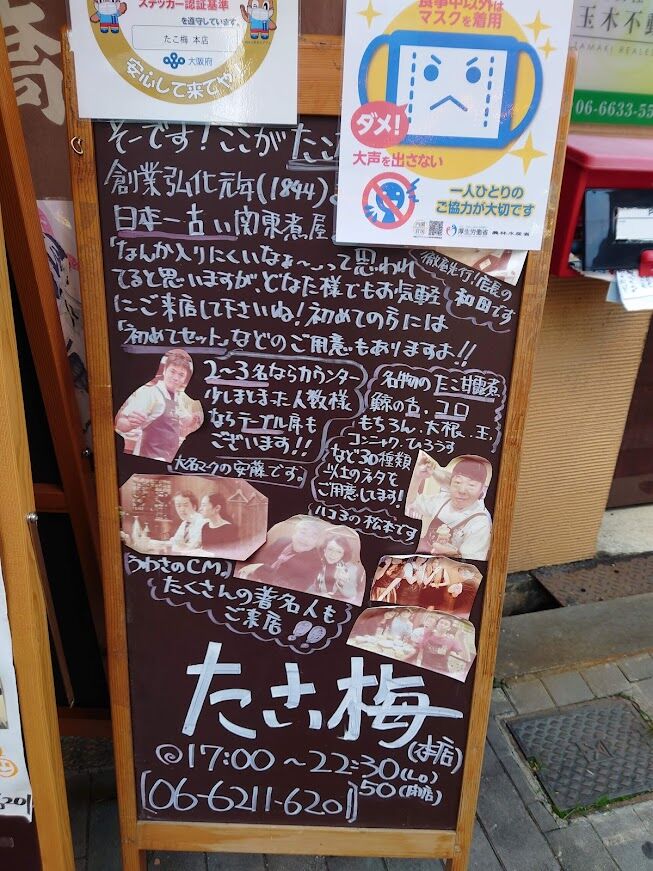 ステッカー認証基準
を遵守しています。
たこ梅 本店
大阪府
安心して来てや
食事中以外は
マスクを着用
ダメ!
大声を出さない
一人ひとりの
ご協力が大切です
厚生労働省
農林水産省
玉木不動
TAMAKI REALES
06-6633-55
そーです!ここがたこ
創業弘化元年(1844)
日本一古い関東煮屋
「なんか入りにくいなぁ〜」って思われ
てると思いますが、どなた様でもお気軽
にご来店して下さいね!初めての方には
「初めてセット」などのご用意もありますよ!!
店長の
和田です
2〜3名ならカウンター
少しまとまった人数様
ならテーブル席も
ございます!!
の安藤です。
名物のたこ甘露煮
鯨の舌、コロ
もちろん、大根、玉、
コンニャク、ひろうす
など30種類
以上のネタを
ご用意します!
ハコヨの松本です
うわさのCM。
たくさんの著名人も
ご来店
たこ梅
(本店)
◎17:00〜22:30(LO)
50(閉店)
[06-6211-6201]
6201